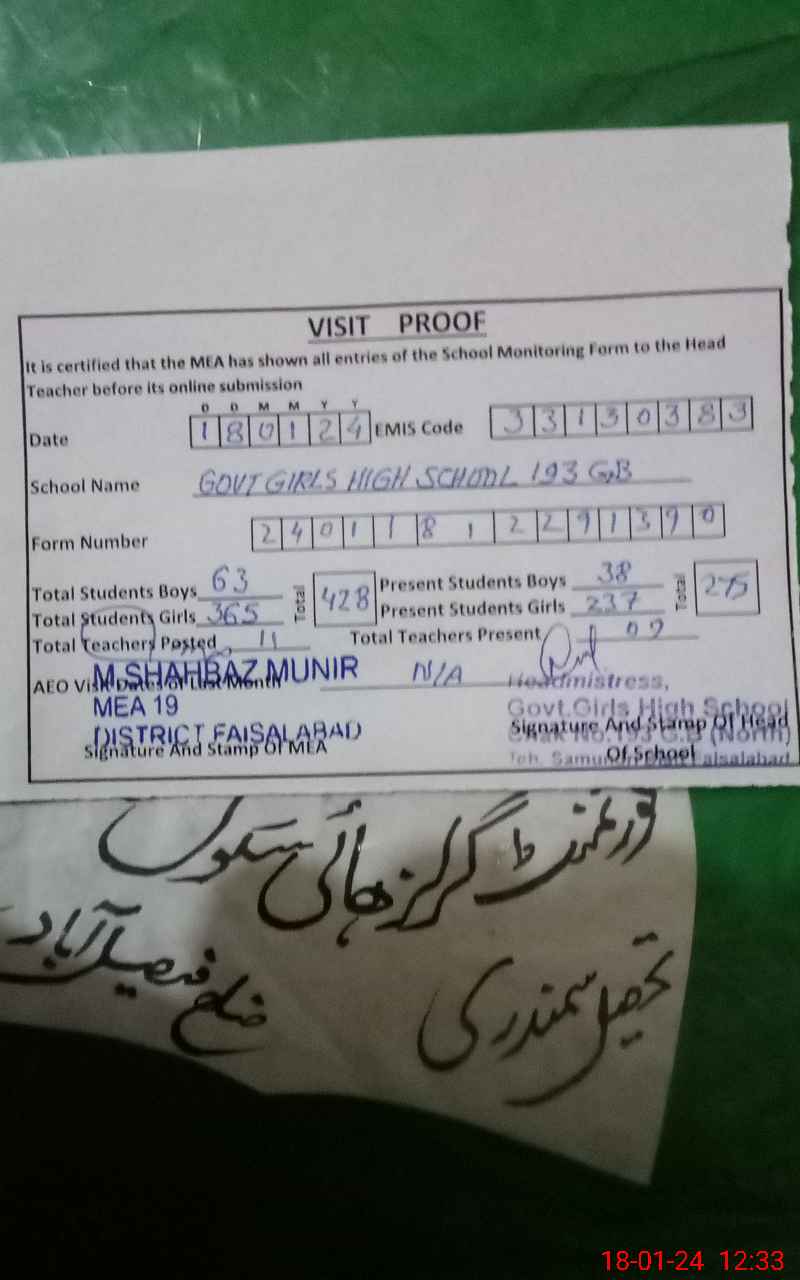 VISIT PROOF
It is certified that the MEA has shown all entries of the School Monitoring Form to the Head
Teacher before its online submission
D D M M Y Y
Date 180124 EMIS Code 33130383
School Name GOVT GIRLS HIGH SCHOOL 193 GB
Form Number 24011812291390
Total Students Boys 63 Total 428 Present Students Boys 38 Total 275
Total Students Girls 365 Present Students Girls 237
Total Teachers Posted 11 Total Teachers Present 09
AEO Visit Dates of Last Month N/A
M.SHAHBAZ MUNIR
MEA 19
DISTRICT FAISALABAD
Signature And Stamp Of MEA
Headmistress,
Govt.Girls High School
Chak No.193 G.B (North)
Teh. Samundri Faisalabad
Signature And Stamp Of Head
Of School
گورنمنٹ گرلز ہائی سکول
تحصیل سمندری
ضلع فیصل آباد
18-01-24 12:33